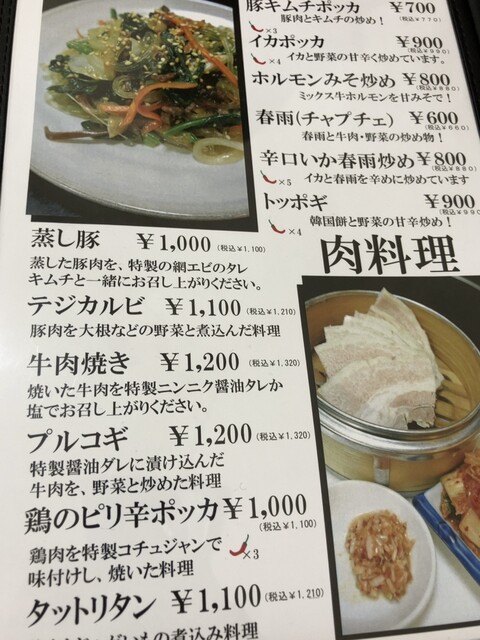 豚キムチポッカ ￥700
(税込￥770)
豚肉とキムチの炒め！
×3
イカポッカ ￥900
(税込￥990)
×4 イカと野菜の甘辛く炒めています。
ホルモンみそ炒め ￥800
(税込￥880)
ミックス牛ホルモンを甘みそで！
春雨(チャプチェ) ￥600
(税込￥660)
春雨と牛肉・野菜の炒め物！
辛口いか春雨炒め ￥800
(税込￥880)
×5 イカと春雨を辛めに炒めています
トッポギ ￥900
(税込￥990
×4 韓国餅と野菜の甘辛炒め！
肉料理
蒸し豚 ￥1,000 (税込￥1,100)
蒸した豚肉を、特製の網エビのタレ
キムチと一緒にお召し上がりください。
テジカルビ ￥1,100 (税込￥1,210)
豚肉を大根などの野菜と煮込んだ料理
牛肉焼き ￥1,200 (税込￥1,320)
焼いた牛肉を特製ニンニク醤油タレか
塩でお召し上がりください。
プルコギ ￥1,200 (税込￥1,320)
特製醤油ダレに漬け込んだ
牛肉を、野菜と炒めた料理
鶏のピリ辛ポッカ ￥1,000
(税込￥1,100)
鶏肉を特製コチュジャンで ×3
味付けし、焼いた料理
タットリタン ￥1,100 (税込￥1,210)
の煮込み料理